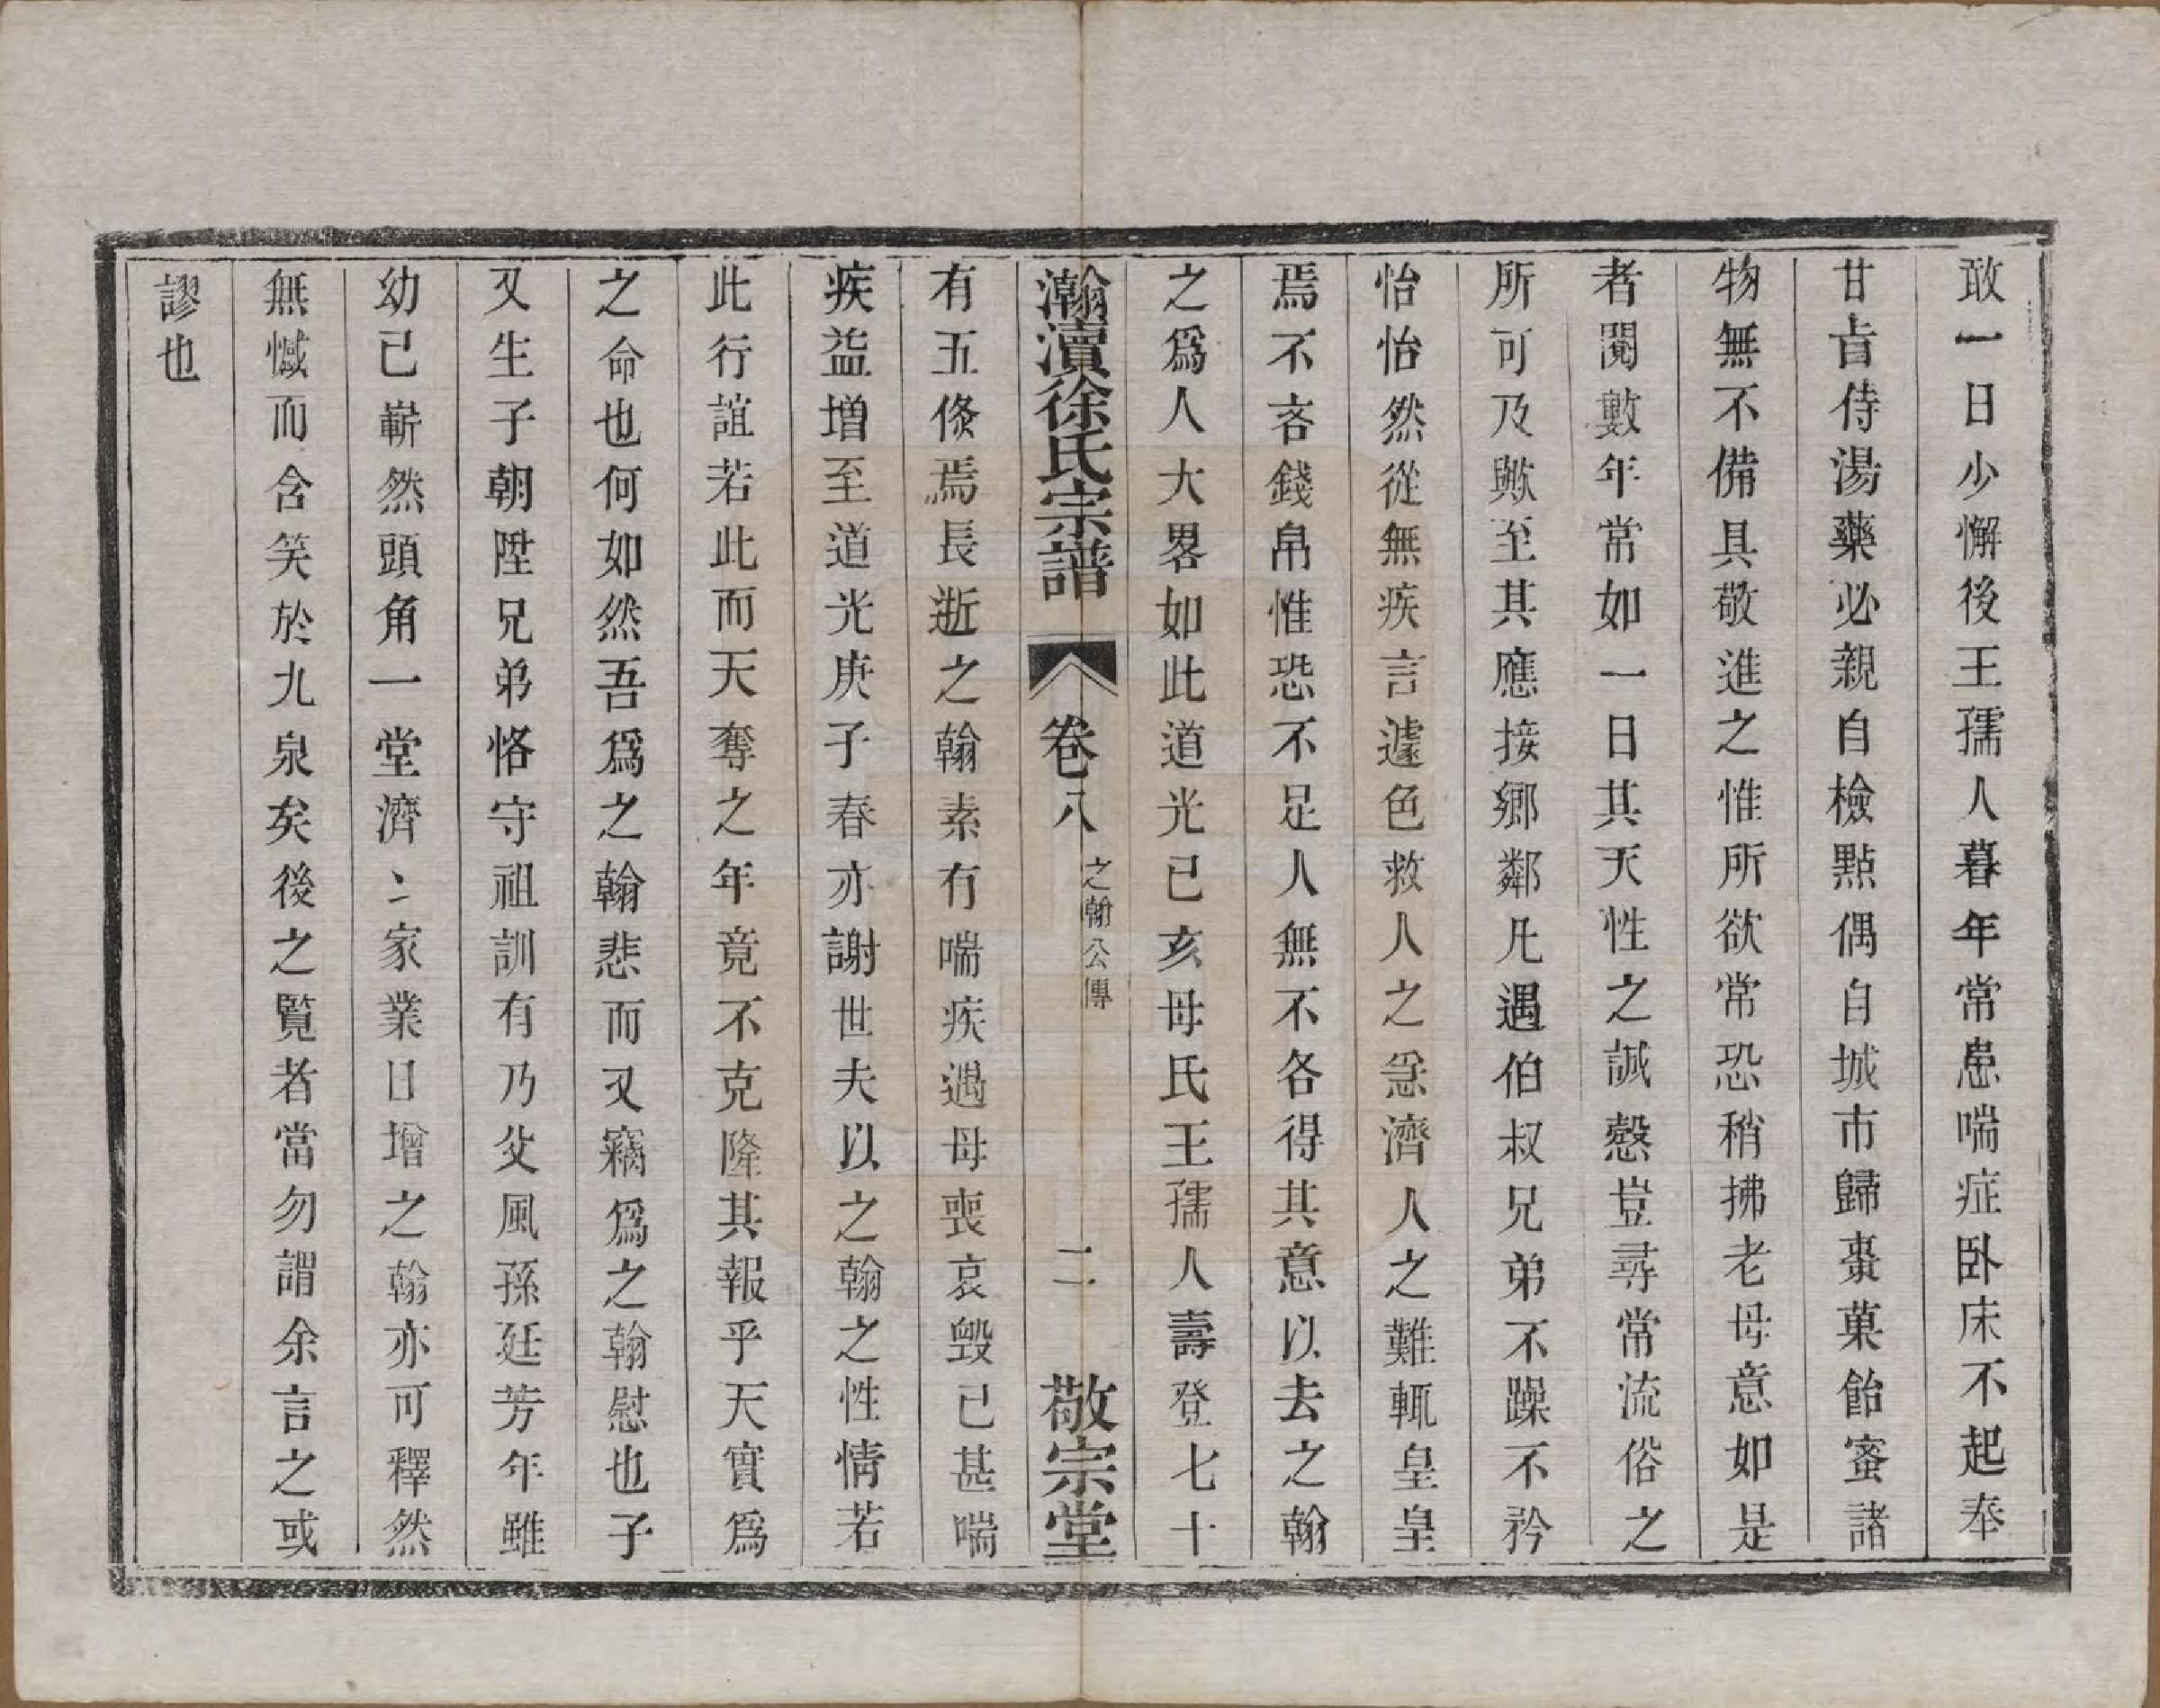 敢一日少懈後王孺人暮年常患喘症卧床不起奉
甘旨侍湯藥必親自檢點偶自城市歸棗菓飴蜜諸
物無不備具敬進之惟所欲常恐稍拂老母意如是
者閱數年常如一日其天性之誠慤豈尋常流俗之
所可及歟至其應接鄉鄰凡遇伯叔兄弟不躁不矜
怡怡然從無疾言遽色救人之急濟人之難輒皇皇
焉不吝錢帛惟恐不足人無不各得其意以去之翰
之爲人大畧如此道光已亥母氏王孺人壽登七十
瀚瀆徐氏宗譜 卷八 之翰公傳 二 敬宗堂
有五倐焉長逝之翰素有喘疾遇母喪哀毀已甚喘
疾益增至道光庚子春亦謝世夫以之翰之性情若
此行誼若此而天奪之年竟不克隆其報乎天實爲
之命也何如然吾爲之翰悲而又竊爲之翰慰也子
又生子朝陞兄弟恪守祖訓有乃父風孫廷芳年雖
幼已嶄然頭角一堂濟〻家業日增之翰亦可釋然
無憾而含笑於九泉矣後之覧者當勿謂余言之或
謬也